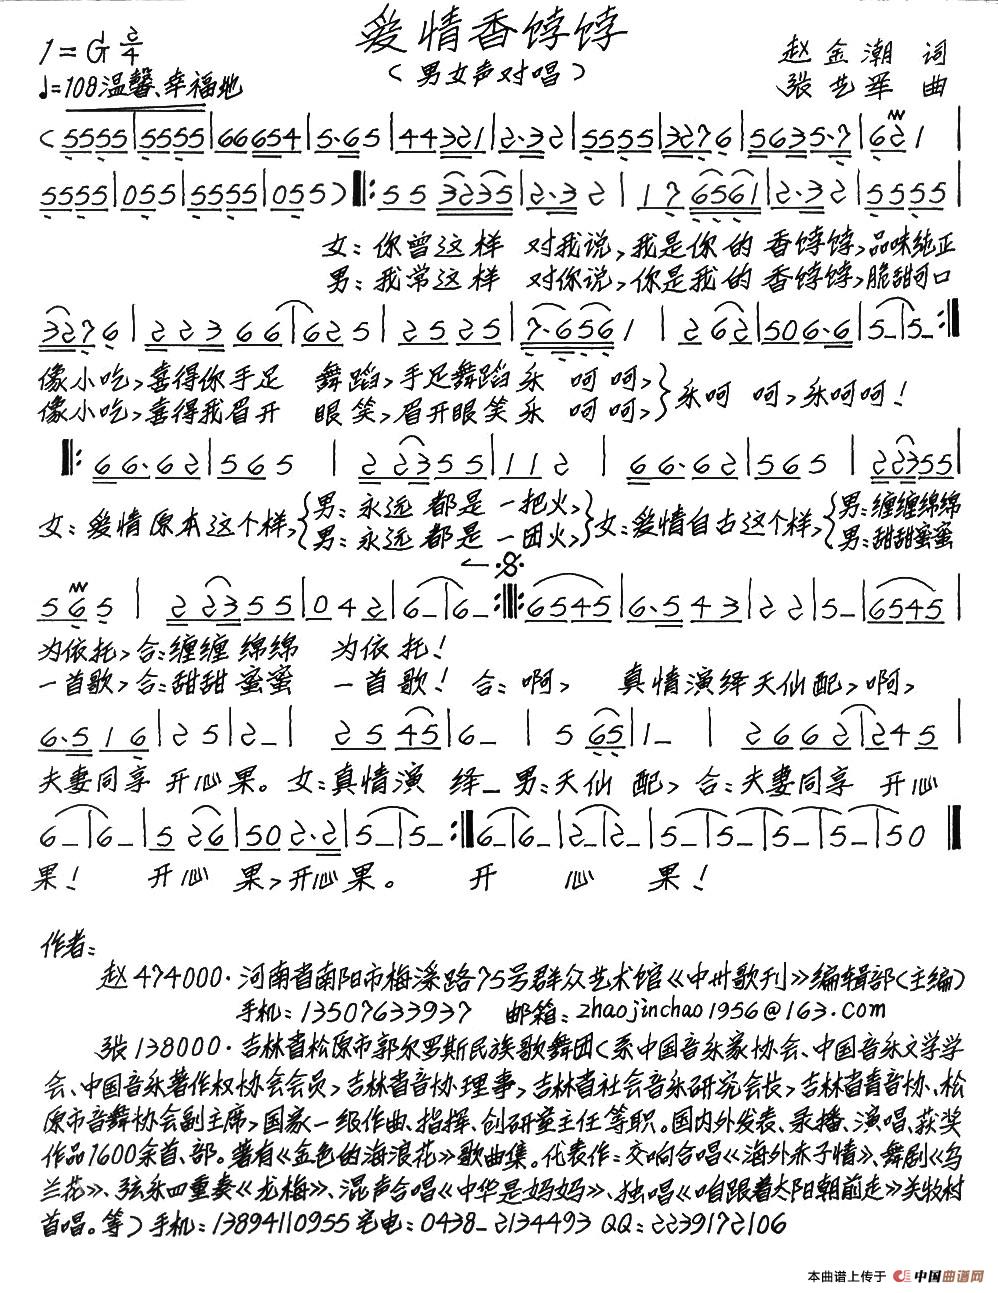 爱情香饽饽
1=G 2/4
(男女声对唱)
赵金潮 词
♩=108 温馨、幸福地
张艺军 曲
(5555|5555|66654|5·65|44321|2·32|5555|3276|5635·7|621|
5555|055|5555|055)‖:55 3235|2·32|17 6561|2·32|5555|
女:你曾这样 对我说,我是你的 香饽饽,品味纯正
男:我常这样 对你说,你是我的 香饽饽,脆甜可口
3276|22366|625|2525|7·6561|262|506·6|5-|5-:‖
像小吃,喜得你手足 舞蹈,手足舞蹈 乐 呵呵,}乐呵 呵,乐呵呵!
像小吃,喜得我眉开 眼笑,眉开眼笑 乐 呵呵,
‖:66·62|565|22355|112|66·62|565|22355|
女:爱情原本这个样,{男:永远 都是 一把火,}女:爱情自古这个样,{男:缠缠绵绵
男:永远 都是 一团火, 男:甜甜蜜蜜
565|22355|042|6-|6-:‖:6545|6·543|22|5-|6545|
为依托,合:缠缠 绵绵 为依托!
一首歌,合:甜甜 蜜蜜 一首歌!合:啊, 真情演绎天仙配,啊,
6·516|25|2-|2545|6-|565|1-|2662|245|
夫妻同享 开心果。女:真情演 绎-男:天仙 配,合:夫妻同享 开心
6-|6-|526|502·2|5-|5-:‖6-|6-|2-|2-|5-|5-|5-|5-|50‖
果! 开心 果,开心果。 开 心 果!
作者:
赵474000·河南省南阳市梅溪路75号群众艺术馆《中州歌刊》编辑部(主编)
手机:13507633937 邮箱:zhaojinchao1956@163.com
张138000·吉林省松原市郭尔罗斯民族歌舞团(系中国音乐家协会、中国音乐文学学
会、中国音乐著作权协会会员,吉林省音协理事,吉林省社会音乐研究会长,吉林省青音协、松
原市音舞协会副主席,国家一级作曲、指挥、创研室主任等职。国内外发表、录播、演唱、获奖
作品1600余首、部。著有《金色的海浪花》歌曲集。代表作:交响合唱《海外赤子情》、舞剧《乌
兰花》、弦乐四重奏《龙梅》、混声合唱《中华是妈妈》、独唱《咱跟着太阳朝前走》关牧村
首唱。等)手机:13894110955 宅电:0438-2134493 QQ:2239172106
本曲谱上传于 中国曲谱网